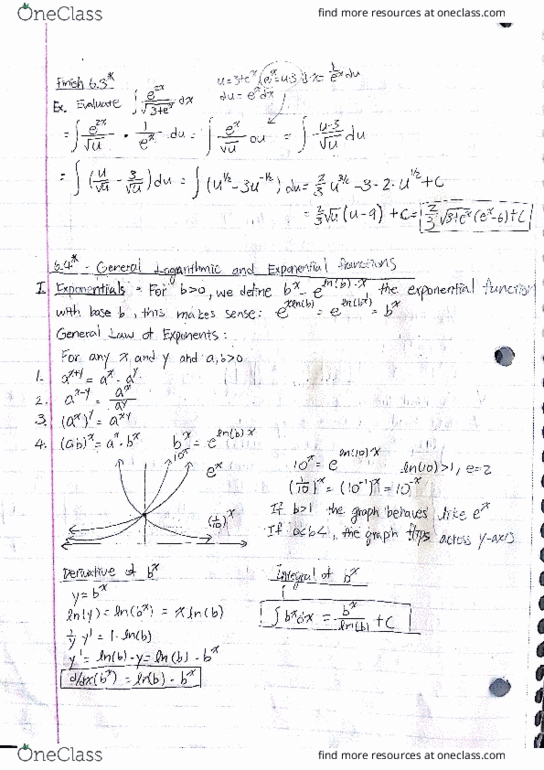 OneClass
find more resources at oneclass.com
Finish 6.3*
u=3+e^x (e^x=u-3
du=e^x dx
Ex. Evaluate ∫ e^2x/√(3+e^x) dx
= ∫ e^2x/√u · 1/e^x du = ∫ e^x/√u du = ∫ u-3/√u du
= ∫ (u/√u - 3/√u) du = ∫ (u^1/2 - 3u^-1/2) du = 2/3 u^3/2 - 3·2·u^1/2 + C
= 2/3 √u (u-9) + C = 2/3 √(3+e^x) (e^x-6) + C
6.4* - General Logarithmic and Exponential functions
I. Exponentials = For b>0, we define b^x = e^ln(b)·x the exponential function
with base b, this makes sense: e^xln(b) = e^ln(b^x) = b^x
General Law of Exponents:
For any x and y and a,b>0
1. a^x+y = a^x · a^y
2. a^x-y = a^x/a^y
3. (a^x)^y = a^xy
4. (ab)^x = a^x · b^x
b^x = e^ln(b)·x
10^x
e^x
(1/10)^x
10^x = e^ln(10)·x
ln(10)>1, e=2
(1/10)^x = (10^-1)^x = 10^-x
If b>1 the graph behaves like e^x
If 0<b<1, the graph flips across y-axis
Derivative of b^x
y=b^x
ln(y) = ln(b^x) = x ln(b)
1/y y' = 1·ln(b)
y' = ln(b)·y = ln(b)·b^x
d/dx(b^x) = ln(b)·b^x
Integral of b^x
∫ b^x dx = b^x/ln(b) + C
OneClass
find more resources at oneclass.com